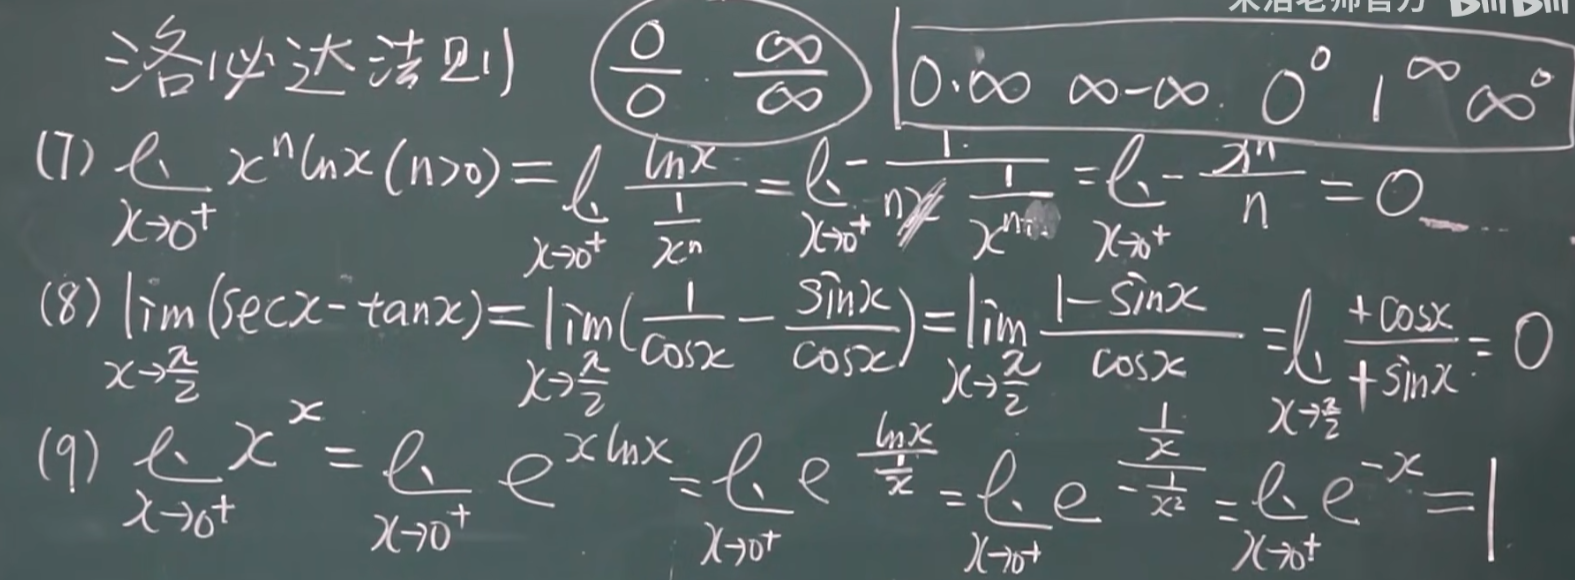 宋浩老师官方 bilibili
洛必达法则 0/0 . ∞/∞ 0·∞ ∞-∞. 0^0 1^∞ ∞^0
(7) lim_{x→0⁺} xⁿlnx(n>0) = lim_{x→0⁺} lnx/(1/xⁿ) = lim_{x→0⁺} - 1/(n 1/xⁿ) = lim_{x→0⁺} - xⁿ/n = 0
(8) lim_{x→π/2} (secx-tanx) = lim_{x→π/2} (1/cosx - sinx/cosx) = lim_{x→π/2} (1-sinx)/cosx = lim_{x→π/2} +cosx/+sinx = 0
(9) lim_{x→0⁺} x^x = lim_{x→0⁺} e^{xlnx} = lim_{x→0⁺} e^{lnx/(1/x)} = lim_{x→0⁺} e^{(1/x)/(-1/x²)} = lim_{x→0⁺} e^{-x} = 1